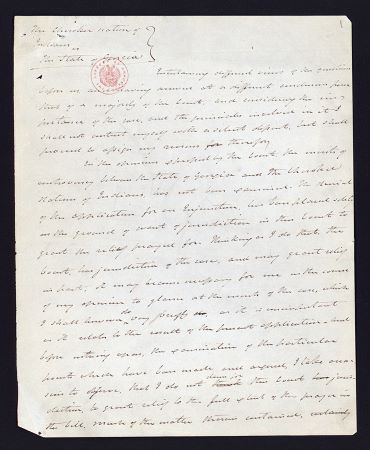 The Cherokee Nation of
Indians vs
The State of Georgia
Entertaining different views of the questions
before us in this case, and having arrived at a different conclusion from
that of a majority of the court, and considering the im-
portance of the case, and the principles involved in it, I
shall not content myself with a silent dissent, but shall
proceed to assign my reasons therefor
In the opinion pronounced by the court the merits of
controversy between the State of Georgia and the Cherokee
Nation of Indians has not been examined. The denial
of the application for an Injunction, has been placed solely
on the ground of want of jurisdiction in this court to
grant the relief prayed for. Thinking as I do that the
Court has jurisdiction of the case, and may grant relief
in part, it may become necessary for me in the course
of my opinion to glance at the merits of the case, which
I shall however do very briefly, as it is unimportant
as it relates to the result of the present application. and
before entering upon the examination of the particular
points which have been made and argued, I take occa-
sion to observe, that I do not the Court
diction, to grant relief to the full extent of the prayer in
the bill, much of the matter therein contained, certainly